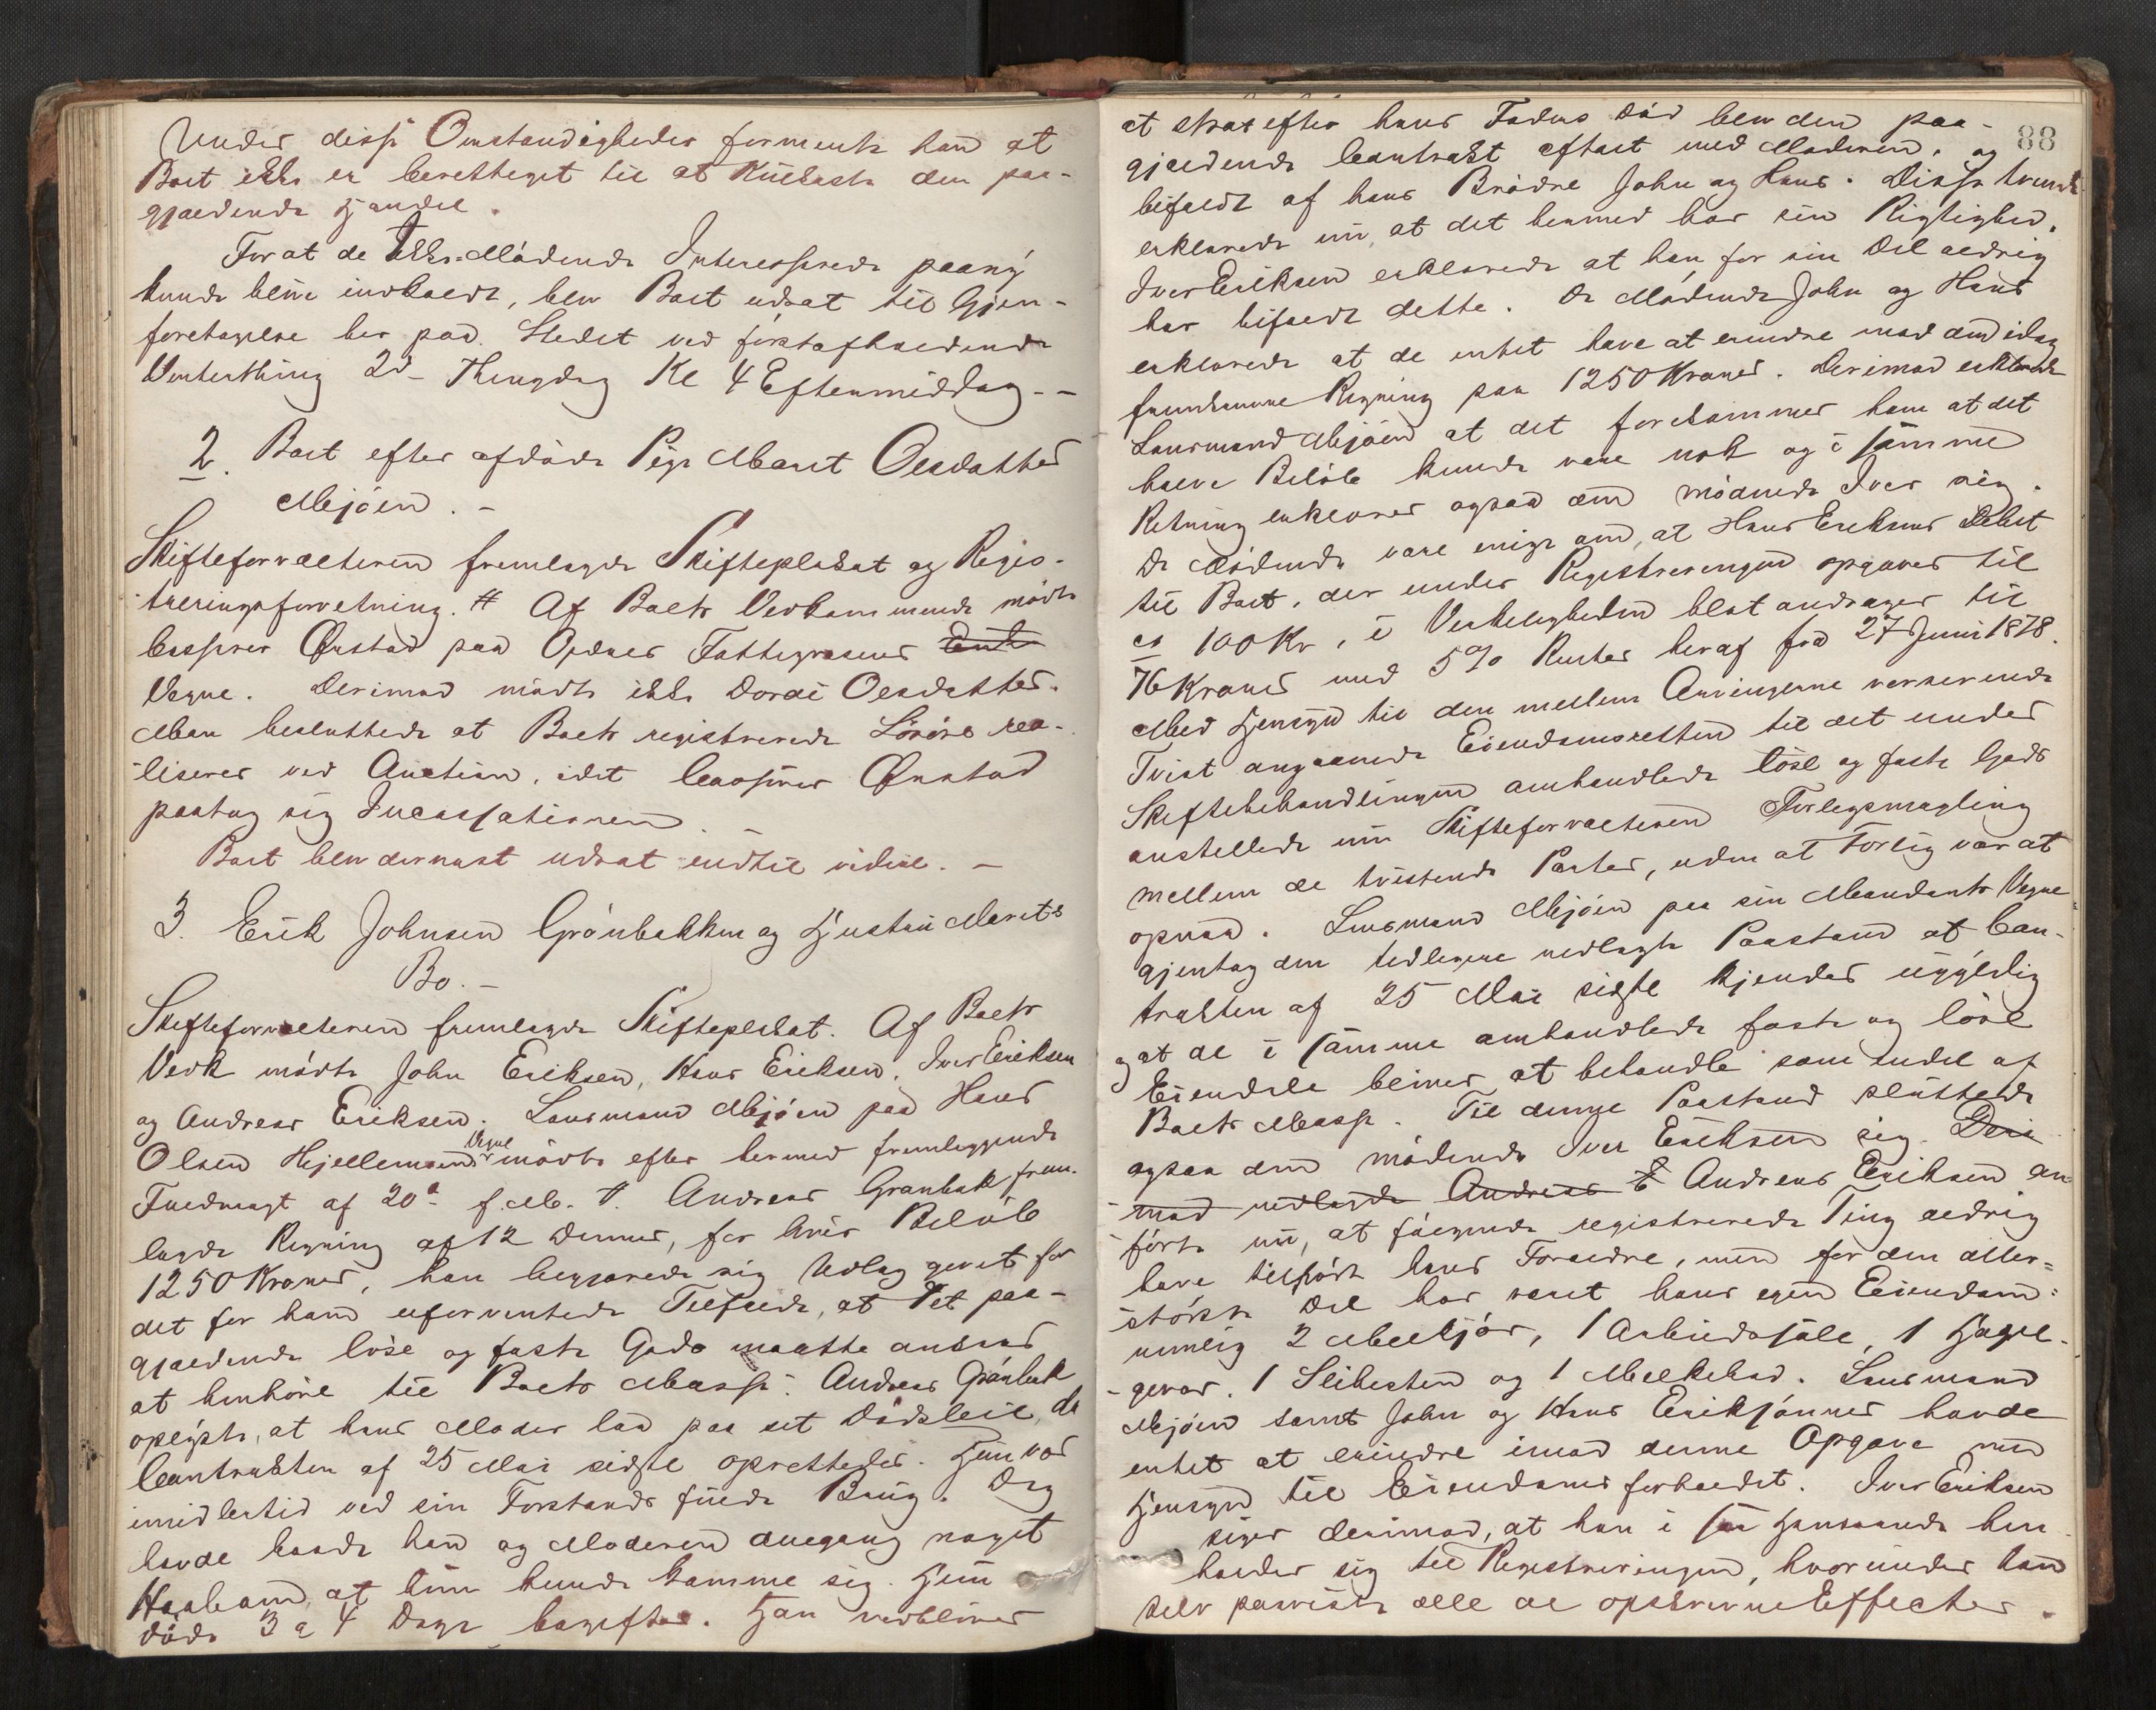 Under disse Omstændigheder formente han at
Boet ikke er berettiget til at kuldkaste den paa-
gjældende Handel.
For at de ikke-Mødende Interesserede paany
kunde blive indkaldt, blev Boet udsat til Gjen-
foretagelse her paa Stedet ved førstafholdende
Vinterthing 2d Thingdag Kl 4 Eftermiddag. -
2. Boet efter afdøde Pige Marit Olsdatter
Mjøen. -
Skifteforvalteren fremlagde Skifteplakat og Regis-
treringsforretning. # Af Boets Vedkommende mødte
Casserer Ørstad paa Opdals Fattigvæsens
Vegne. Derimod mødte ikke Dordi Olsdatter.
Man besluttede at Boets registrerede Løsøre rea-
liseres ved Auction, idet Casserer Ørstad
paatog sig Incassationen.
Boet blev dernæst udsat indtil videre. -
3. Erik Johnsen Grønbakken og Hustru Marits
Bo. -
Skifteforvalteren fremlagde Skifteplakat. Af Boets
Vedk mødte John Eriksen, Hans Eriksen, Iver Eriksen
og Andreas Eriksen. Lensmand Mjøen paa Hans
Olsen Hjellemsens Vegne mødte efter hermed fremlæggende
Fuldmagt af 20de f. M. #. Andreas Grønbak frem-
lagde Regning af 12 dennes, for hvis Beløb
1250 Kroner, han begjærede sig Udlæg givet for
det for ham uforventede Tilfælde, at det paa-
gjældende løse og faste Gods maatte ansees
at henhøre til Boets Masse. Andreas Grønbak
oplyste, at hans Moder laa paa sit Dødsleie, da
Contrakten af 25 Mai sidste oprettedes. Hun var
imidlertid ved sin Forstands fulde Brug. Dog
havde baade han og Moderen dengang noget
Haab om, at hun kunde komme sig. Hun
døde 3 a 4 Dage bagefter. Han vedbliver
88
at strax efter hans Faders Død blev den paa-
gjældende Contrakt aftalt med Moderen, og
bifaldt af hans Brødre John og Hans. Disse tvende
erklærede nu, at det hermed har sin Rigtighed.
Iver Eriksen erklærede at han for sin Del aldrig
har bifaldt dette. De Mødende John og Hans
erklærede at de intet have at erindre mod den idag
fremkomne Regning paa 1250 Kroner. Derimod erklærede
Lensmand Mjøen at det forekommer ham at det
halve Beløb kunde være nok og i samme
Retning erklærer ogsaa den mødende Iver sig.
De Mødende vare enige om, at Hans Eriksens Debet
til Boet, der under Registreringen opgaves til
ca 100 Kr, i Virkeligheden blot andrager til
76 Kroner med 5% Renter heraf fra 27 Juni 1878.
Med Hensyn til den mellem Arvingerne verserende
Tvist angaaende Eiendomsretten til det under
Skiftebehandlingen omhandlede løse og faste Gods
anstillede nu Skifteforvalteren Forligsmægling
mellem de tvistende Parter, uden at Forlig var at
opnaa. Lensmand Mjøen paa sin Mandants Vegne
gjentog den tidligere nedlagte Paastand at Con-
trakten af 25 Mai sidste kjendes ugyldig
og at de i samme omhandlede faste og løse
Eiendele bliver at behandle som Endel af
Boets Masse. Til denne Paastand sluttede
ogsaa den mødende Iver Eriksen sig. Deri-
mod nedlagde Andreas E Andreas Eriksen an-
førte nu, at følgende registrerede Ting aldrig
have tilhørt hans Forældre, men for den aller-
største Del har været hans egen Eiendom:
nemlig 2 Melkjør, 1 Arbeidssæle, 1 Hagel-
gevær. 1 Slibesten og 1 Melkekar. Lensmand
Mjøen samt John og Hans Erikssønner havde
intet at erindre imod denne Opgave med
Hensyn til Eiendomsforholdet. Iver Eriksen
siger derimod, at han i saa Henseende hen-
holder sig til Registreringen, hvorunder han
selv paaviste alle de opskrevne Effecter.